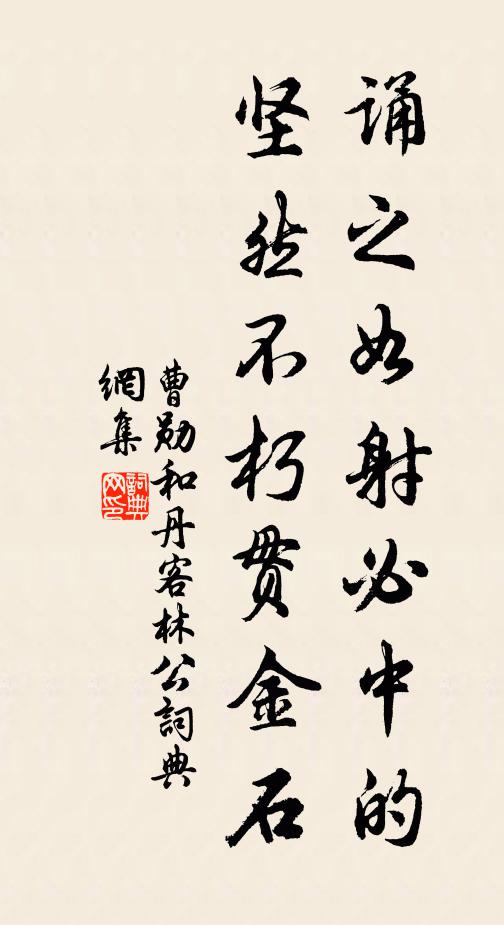 诵之如射必中的
坚然不朽贯金石
曹勋和丹客林公詞典
網集
詞典
网印